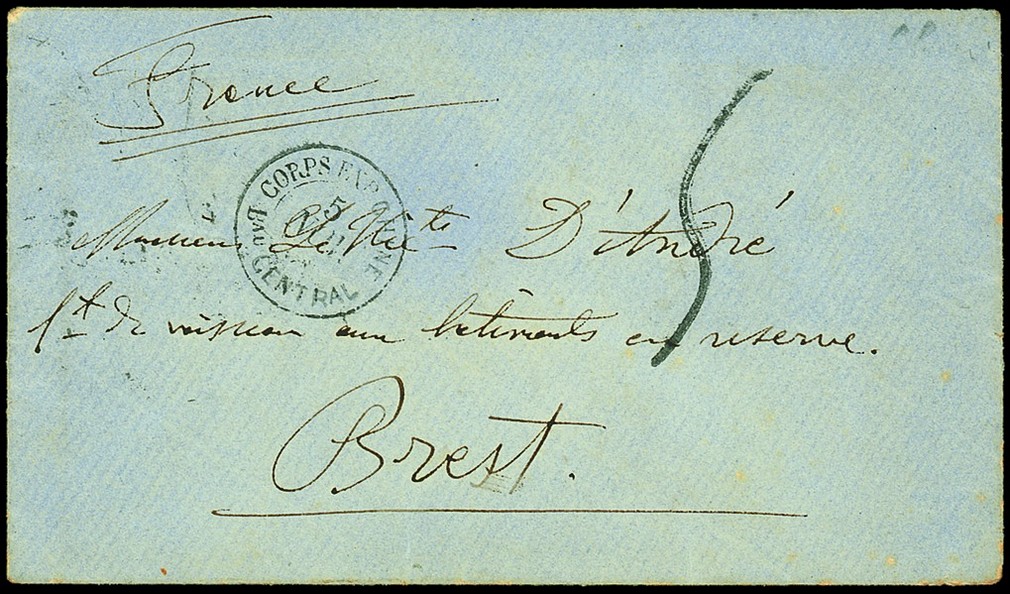 France
CORPS EXP
CENTRAL
5
Monsieur Le Victe D'André
Lt de vaisseau aux bâtiments en réserve.
Brest.